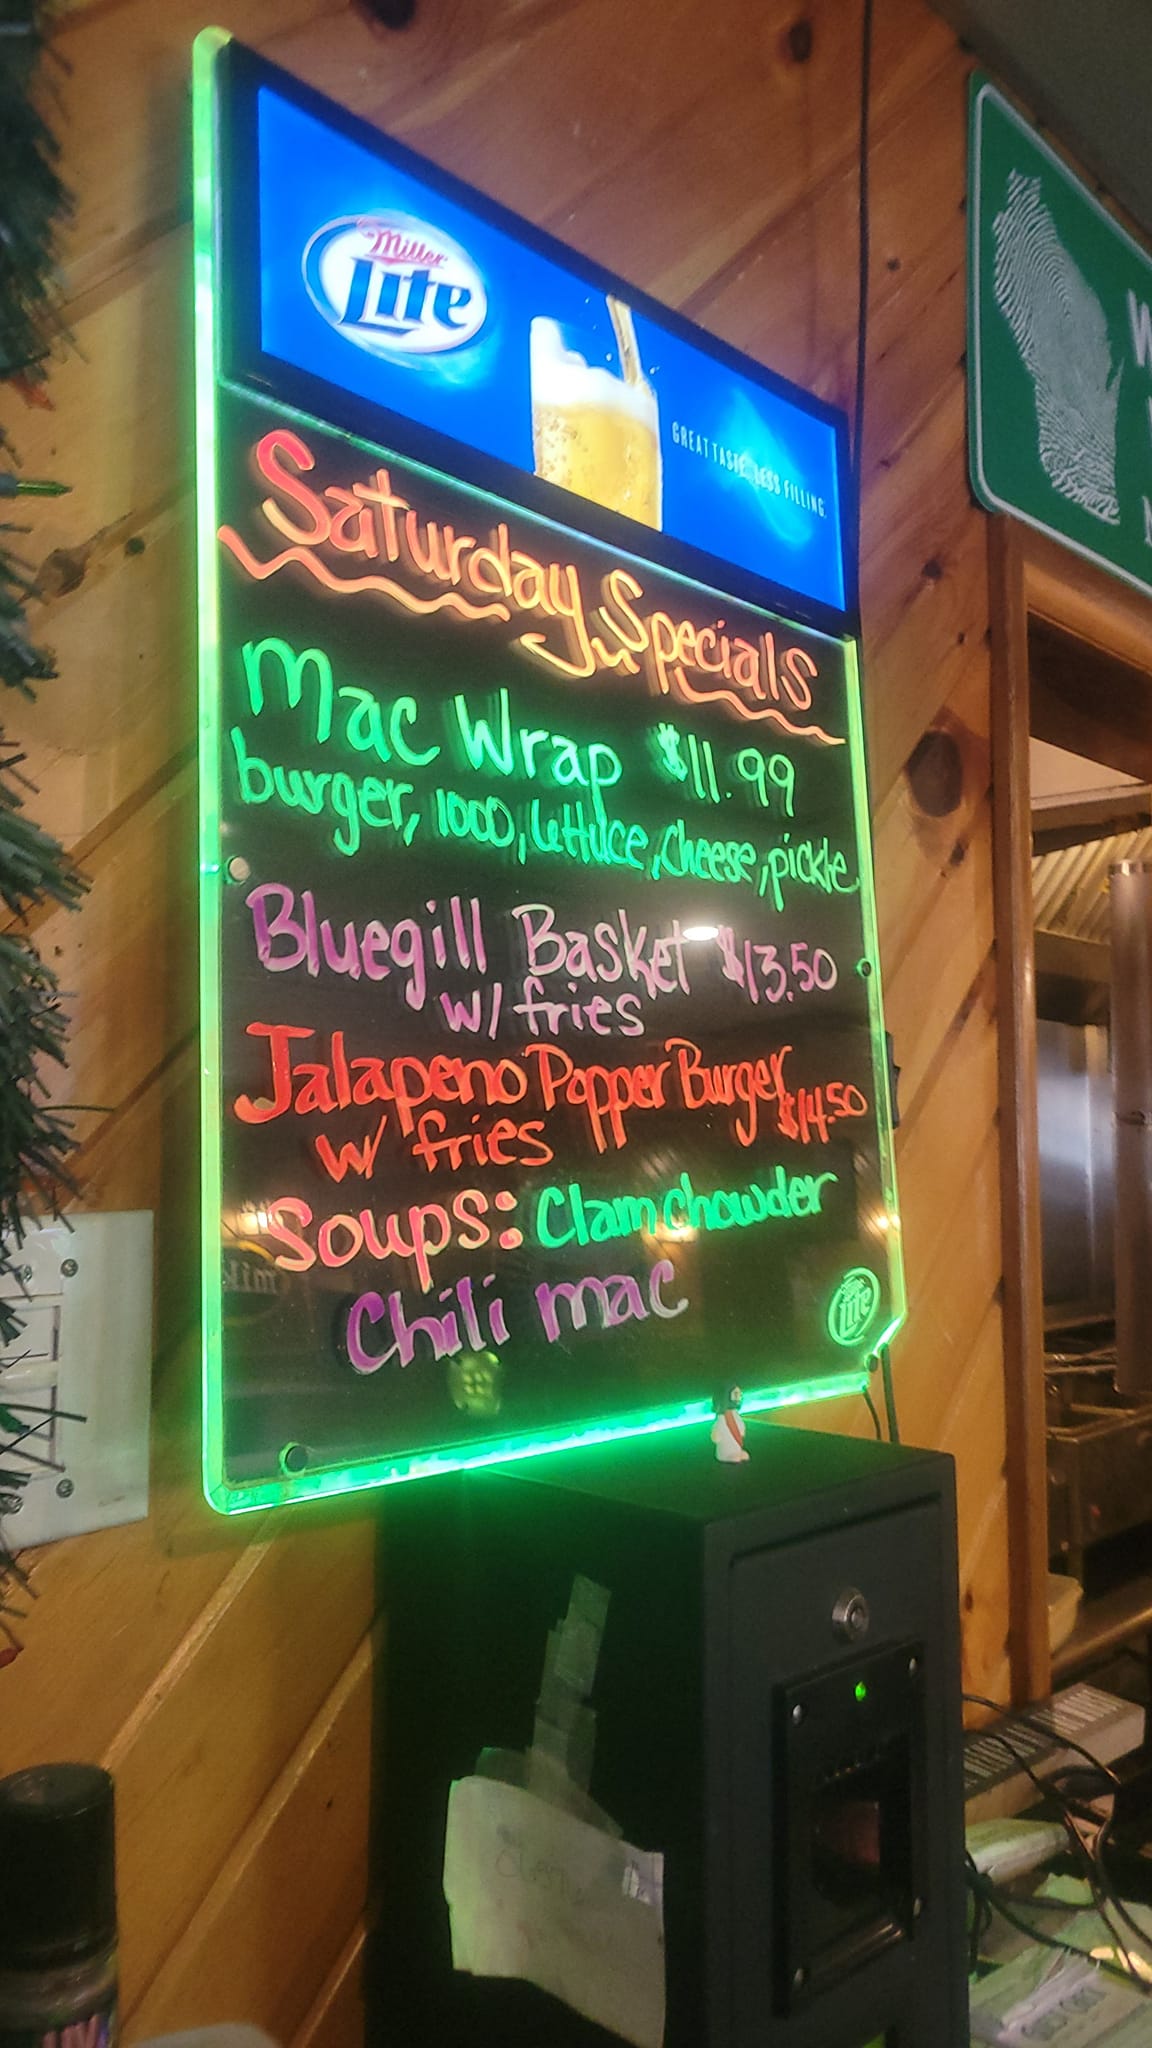 Miller
Lite
GREAT TASTE. LESS FILLING.
Saturday Specials
Mac Wrap $11.99
burger, 1000, lettuce, cheese, pickle
Bluegill Basket $13.50
w/ fries
Jalapeno Popper Burger $14.50
w/ fries
Soups: Clam chowder
Chili mac
Lite